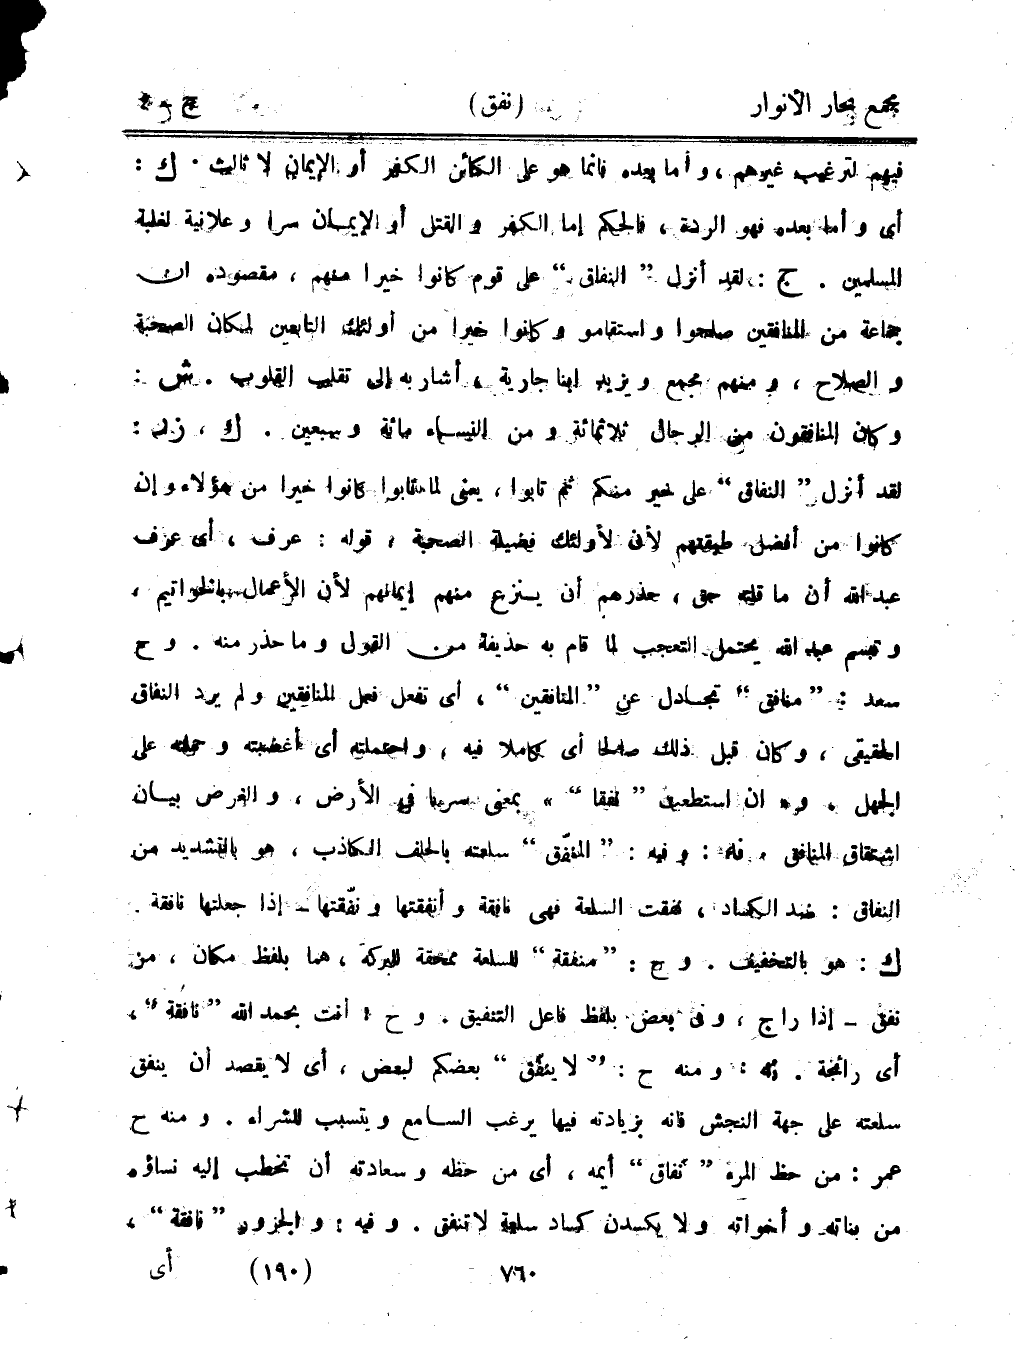 مجمع بحار الأنوار (نفق) ج - ٤
فيهم لترغيب غيرهم ، و أما بعده فانما هو على الكائن الكفر أو الإيمان لا ثالث . ك :
أى و أما بعده فهو الردة ، فالحكم إما الكفر و القتل أو الإيمان سرا و علانية لغلبة
المسلمين . ج : لقد أنزل ” النفاق “ على قوم كانوا خيرا منهم ، مقصوده ان
جماعة من المنافقين صلحوا و استقامو و كانوا خيرا من أولئك التابعين لمكان الصحبة
و الصلاح ، و منهم مجمع و يزيد ابنا جارية ، أشار به إلى تقلب القلوب . ش :
و كان المنافقون من الرجال ثلاثمائة و من النساء مائة و سبعين . ك ، زك :
لقد أنزل ” النفاق “ على خير منكم ثم تابوا ، يعنى لما تابوا كانوا خيرا من هؤلاء و إن
كانوا من أفضل طبقتهم لأن لأولئك فضيلة الصحبة ، قوله : عرف ، أى عرف
عبد الله أن ما قلته حق ، حذرهم أن ينزع منهم إيمانهم لأن الأعمال بالخواتيم ،
و تبسم عبد الله يحتمل التعجب لما قام به حذيفة من القول و ما حذر منه . و ح
سعد : ” منافق “ تجادل عن ” المنافقين “ ، أى تفعل فعل المنافقين و لم يرد النفاق
الحقيقى ، و كان قبل ذلك صالحا أى كاملا فيه ، و احتملته أى أغضبته و حملته على
الجهل . و « ان استطعت ” نفقا “ » بمعنى سربا فى الأرض ، و الغرض بيان
اشتقاق المنافق . نه : و فيه : ” المنفّق “ سلعته بالحلف الكاذب ، هو بالتشديد من
النفاق : ضد الكساد ، نفقت السلعة فهى نافقة و أنفقتها و نفّقتها - إذا جعلتها نافقة .
ك : هو بالتخفيف . و ج : ” منفقة “ للسلعة ممحقة للبركة ، هما بلفظ مكان ، من
نفق - إذا راج ، و فى بعض بلفظ فاعل التنفيق . و ح : أنت بحمد الله ” نافقة “ ،
أى رائجة . نه : و منه ح : ” لا ينفّق “ بعضكم لبعض ، أى لا يقصد أن ينفق
سلعته على جهة النجش فانه بزيادته فيها يرغب السامع و يتسبب للشراء . و منه ح
عمر : من حظ المرء ” نفاق “ أيمه ، أى من حظه و سعادته أن تخطب إليه نساؤه
من بناته و أخواته و لا يكسدن كساد سلعة لا تنفق . و فيه : و الجزور ” نافقة “ ،
٧٦٠ (١٩٠) أى